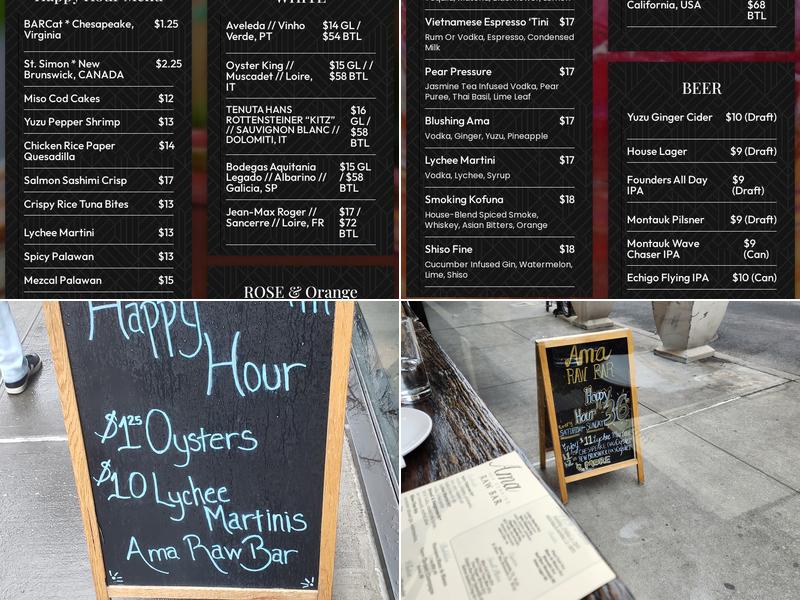 Happy Hour Menu
BARCat * Chesapeake, $1.25
Virginia
St. Simon * New $2.25
Brunswick, CANADA
Miso Cod Cakes $12
Yuzu Pepper Shrimp $13
Chicken Rice Paper $14
Quesadilla
Salmon Sashimi Crisp $17
Crispy Rice Tuna Bites $13
Lychee Martini $13
Spicy Palawan $13
Mezcal Palawan $15
WHITE
Aveleda // Vinho $14 GL /
Verde, PT $54 BTL
Oyster King // $15 GL / /
Muscadet // Loire, $58 BTL
IT
TENUTA HANS $16
ROTTENSTEINER “KITZ” GL /
// SAUVIGNON BLANC // $58
DOLOMITI, IT BTL
Bodegas Aquitania $15 GL
Legado // Albarino // / $58
Galicia, SP BTL
Jean-Max Roger // $17 /
Sancerre // Loire, FR $72
BTL
ROSE & Orange
Vietnamese Espresso 'Tini $17
Rum Or Vodka, Espresso, Condensed
Milk
Pear Pressure $17
Jasmine Tea Infused Vodka, Pear
Puree, Thai Basil, Lime Leaf
Blushing Ama $17
Vodka, Ginger, Yuzu, Pineapple
Lychee Martini $17
Vodka, Lychee, Syrup
Smoking Kofuna $18
House-Blend Spiced Smoke,
Whiskey, Asian Bitters, Orange
Shiso Fine $18
Cucumber Infused Gin, Watermelon,
Lime, Shiso
California, USA $68
BTL
BEER
Yuzu Ginger Cider $10 (Draft)
House Lager $9 (Draft)
Founders All Day $9
IPA (Draft)
Montauk Pilsner $9 (Draft)
Montauk Wave $9
Chaser IPA (Can)
Echigo Flying IPA $10 (Can)
Happy
Hour
$1.25 Oysters
$10 Lychee
Martinis
Ama Raw Bar
Ama
RAW BAR
Happy
Hour 3-6
SATURDAY-SUNDAY
Enjoy $11 Lychee
Ama
RAW BAR